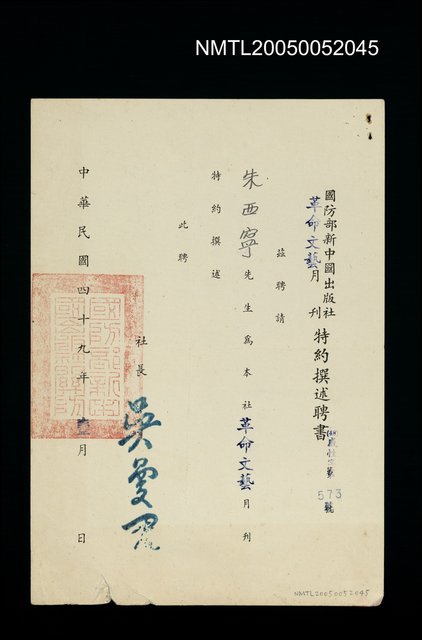 NMTL20050052045
國防部新中國出版社
革命文藝月刊
特約撰述聘書
第573號
茲聘請
朱西甯先生為本社革命文藝月刊
特約撰述
此聘
社長
吳曼君
中華民國四十九年 月 日
NMTL20050052045